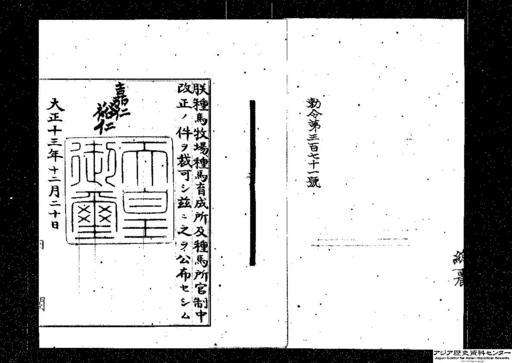 勅令第三百七十一號
朕種馬牧場種馬育成所及種馬所官制中
改正ノ件ヲ裁可シ茲ニ之ヲ公布セシム
嘉仁
裕仁
天皇御璽
大正十三年十二月二十日
内
閣
アジア歴史資料センター
Japan Center for Asian Historical Records